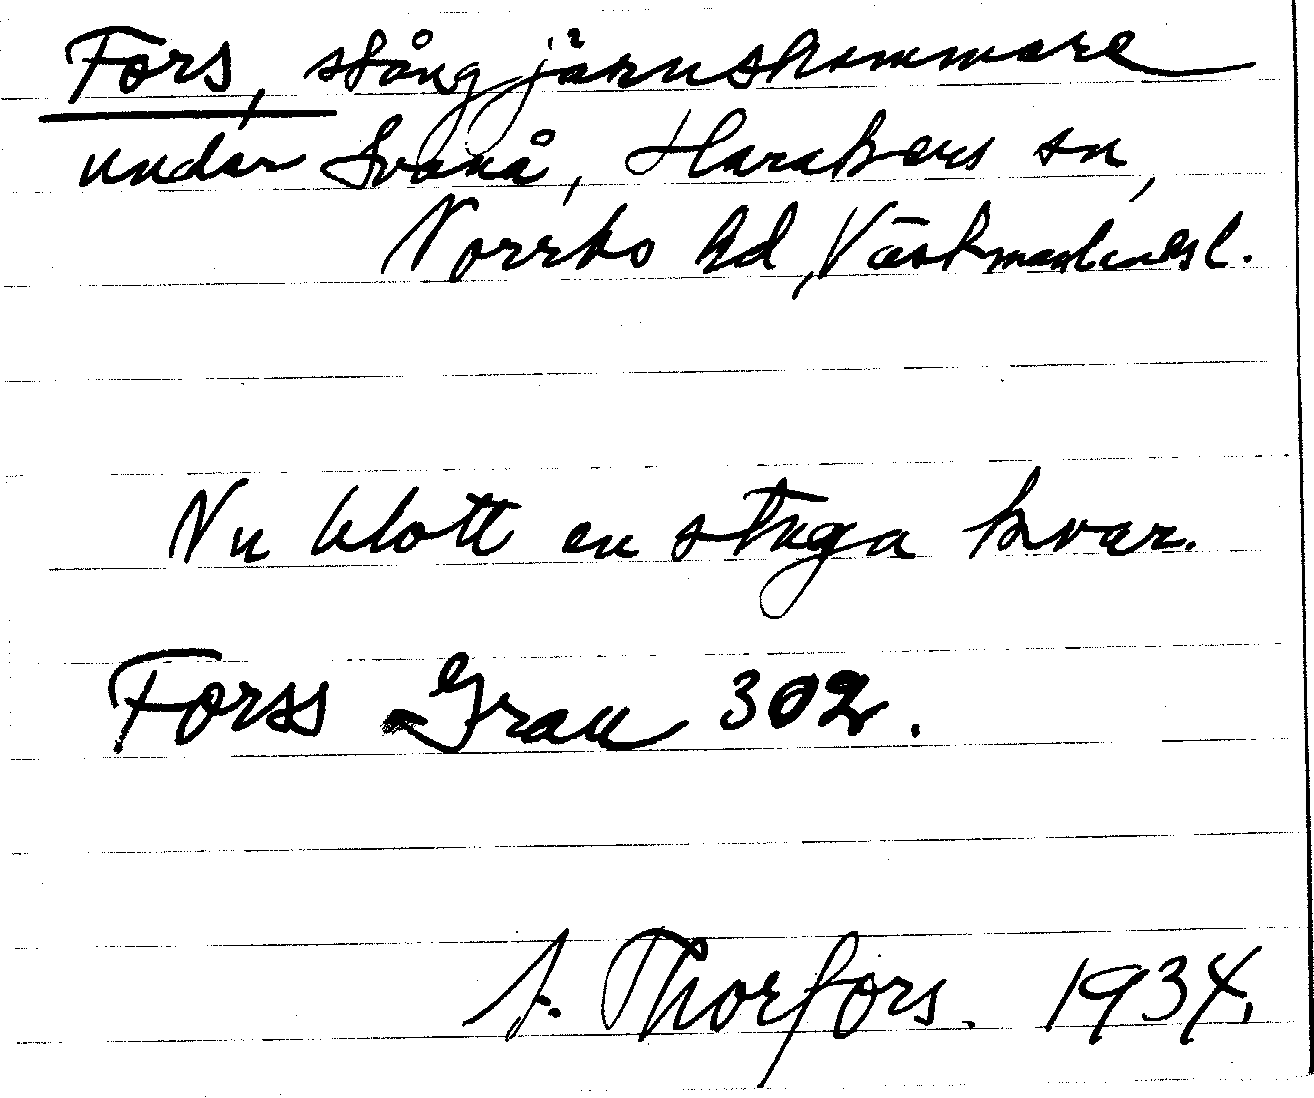 Fors, stångjärnshammare
under Svanå, Harakers sn,
Norrbo hd, Västmanlands l.
Nu blott en stuga kvar.
Forss Grau 302.
A. Thorfors. 1934.